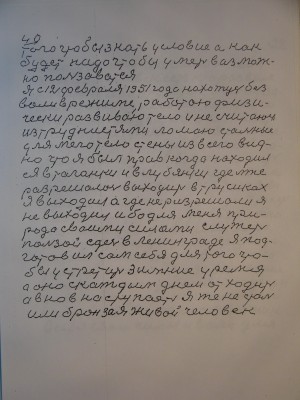 49
того чтобы знать условие а как
будет надо чтобы умет возмож
но ползоватся
я с 12 февраля 1951 года нахотус без
воли в режиме работаю физи-
чески развиваю тело и не считаюс
из трудностями ломаю сталные
для меготело стены из всего вид-
но что я был прав когда находил
ся в таганки и в лубянци где же
разрешалос выходил в трусиках
я выходил а где не ризрешали я
не выходил ибо для меня при-
родо своими силами служет
ползой сдес в Ленинграде я под-
готовил сам себя для того что-
бы устретит зимние уремя
а оно скаждым днем отходит
а внов наступает я же не уам
или бронзая живой человек